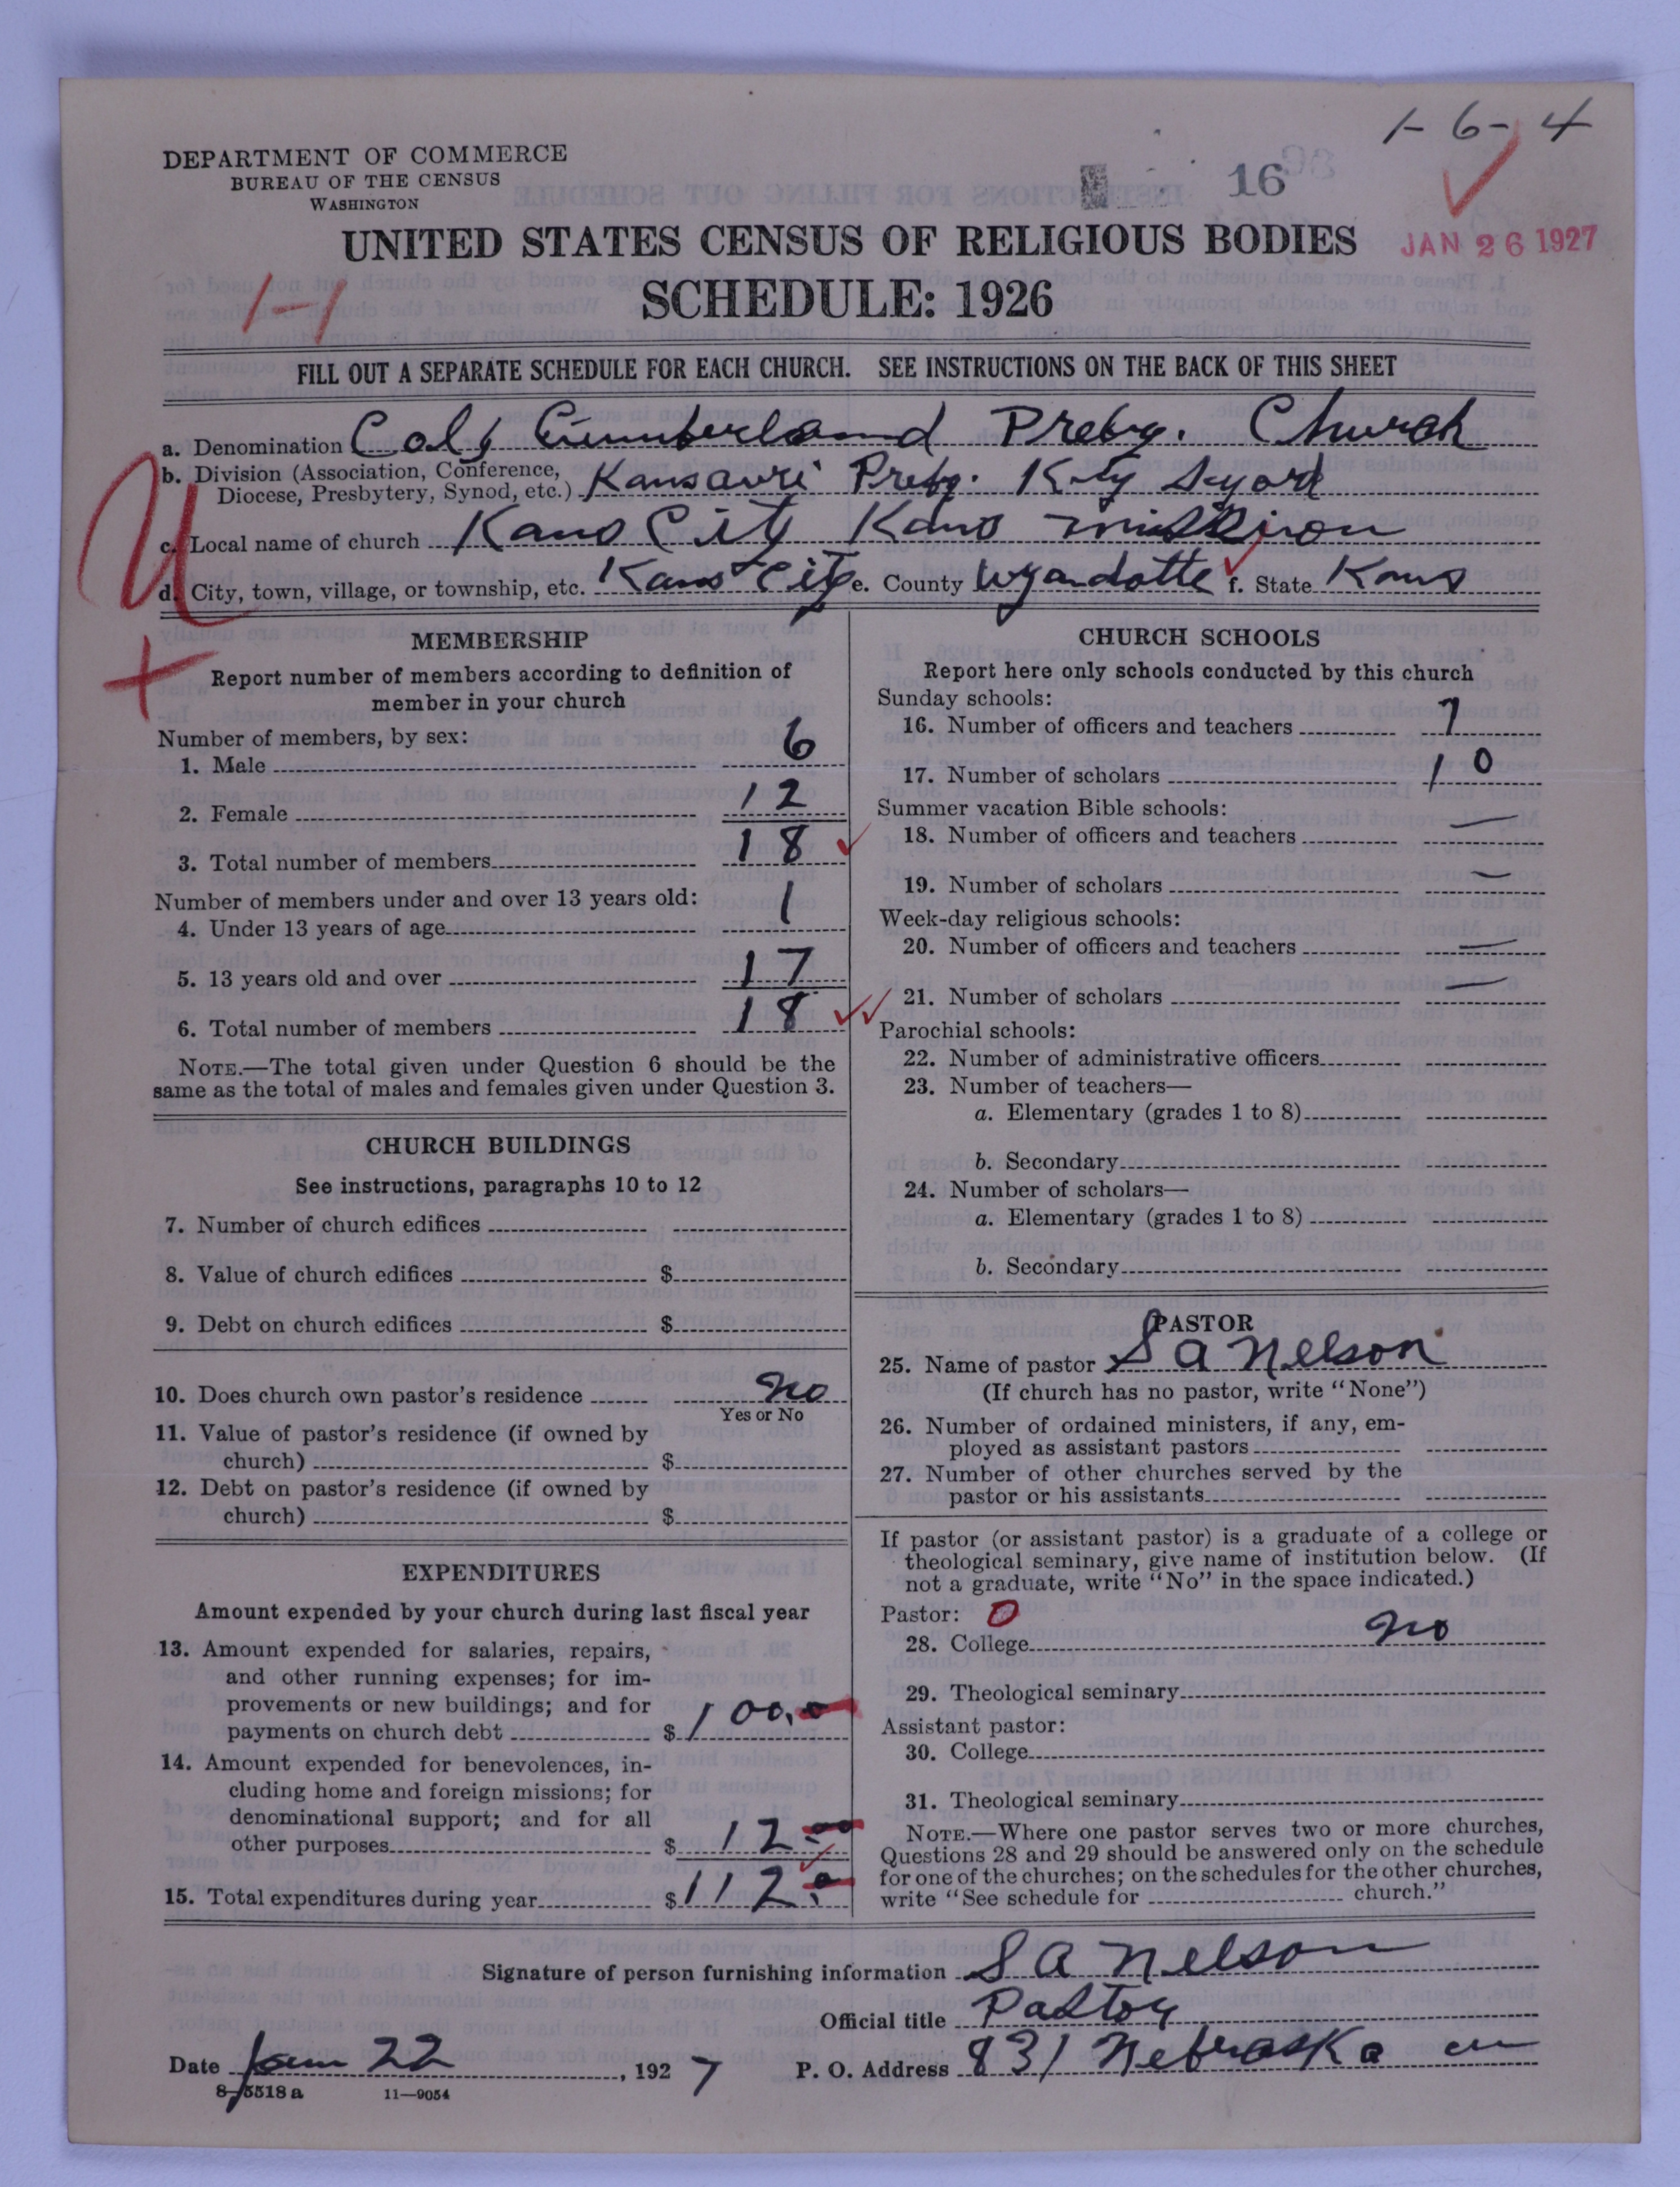 1-6-4
DEPARTMENT OF COMMERCE
BUREAU OF THE CENSUS
WASHINGTON
16
UNITED STATES CENSUS OF RELIGIOUS BODIES
JAN 26 1927
SCHEDULE: 1926
1-1
FILL OUT A SEPARATE SCHEDULE FOR EACH CHURCH. SEE INSTRUCTIONS ON THE BACK OF THIS SHEET
a. Denomination Col Cumberland Presby. Church
b. Division (Association, Conference,
Diocese, Presbytery, Synod, etc.) Kansouri Presby. Ky
c. Local name of church Kans City Kans Mission
d. City, town, village, or township, etc. Kans City e. County Wyandotte f. State Kans
MEMBERSHIP
Report number of members according to definition of
member in your church
Number of members, by sex:
1. Male 6
2. Female 12
3. Total number of members 18
Number of members under and over 13 years old:
4. Under 13 years of age 1
5. 13 years old and over 17
6. Total number of members 18
NOTE.—The total given under Question 6 should be the
same as the total of males and females given under Question 3.
CHURCH BUILDINGS
See instructions, paragraphs 10 to 12
7. Number of church edifices
8. Value of church edifices $
9. Debt on church edifices $
10. Does church own pastor's residence No
Yes or No
11. Value of pastor's residence (if owned by
church) $
12. Debt on pastor's residence (if owned by
church) $
EXPENDITURES
Amount expended by your church during last fiscal year
13. Amount expended for salaries, repairs,
and other running expenses; for im-
provements or new buildings; and for
payments on church debt $ 100.
14. Amount expended for benevolences, in-
cluding home and foreign missions; for
denominational support; and for all
other purposes $ 12
15. Total expenditures during year $ 112
CHURCH SCHOOLS
Report here only schools conducted by this church
Sunday schools:
16. Number of officers and teachers 7
17. Number of scholars 10
Summer vacation Bible schools:
18. Number of officers and teachers —
19. Number of scholars —
Week-day religious schools:
20. Number of officers and teachers —
21. Number of scholars —
Parochial schools:
22. Number of administrative officers
23. Number of teachers—
a. Elementary (grades 1 to 8)
b. Secondary
24. Number of scholars—
a. Elementary (grades 1 to 8)
b. Secondary
PASTOR
25. Name of pastor S A Nelson
(If church has no pastor, write "None")
26. Number of ordained ministers, if any, em-
ployed as assistant pastors
27. Number of other churches served by the
pastor or his assistants
If pastor (or assistant pastor) is a graduate of a college or
theological seminary, give name of institution below. (If
not a graduate, write "No" in the space indicated.)
Pastor: 0
28. College No
29. Theological seminary
Assistant pastor:
30. College
31. Theological seminary
NOTE.—Where one pastor serves two or more churches,
Questions 28 and 29 should be answered only on the schedule
for one of the churches; on the schedules for the other churches,
write "See schedule for church."
Signature of person furnishing information S A Nelson
Official title Pastor
Date Jan 22, 1927 P. O. Address 831 Nebraska
8-5518 a 11—9054